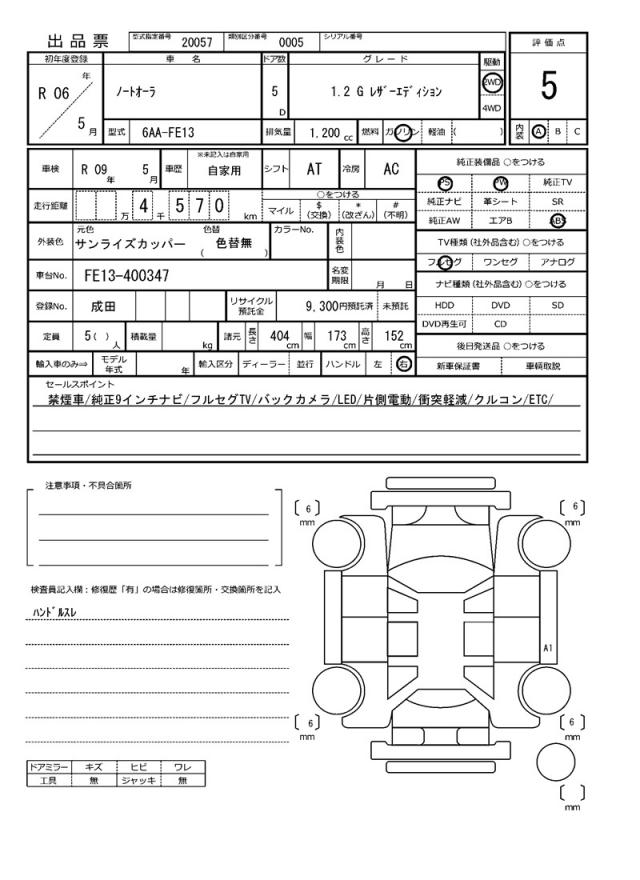 出品票 型式指定番号 20057 類別区分番号 0005 シリアル番号
評価点
初年度登録 車名 ドア数 グレード 駆動
R 06 年 ノートオーラ 5 D 1.2 G レザーエディション 2WD 5
4WD
5 月 型式 6AA-FE13 排気量 1.200 cc 燃料 ガソリン 軽油 ( ) 内装 A B C
車検 R 09 年 5 月 車歴 ※未記入は自家用 自家用 シフト AT 冷房 AC 純正装備品 ○をつける
PS PW 純正TV
走行距離 万 4 千 5 7 0 km ○をつける 純正ナビ 革シート SR
マイル $ (交換) * (改ざん) # (不明) 純正AW エアB ABS
外装色 元色 サンライズカッパー 色替 ( 色替無 ) カラーNo. 内装色 TV種類 (社外品含む) ○をつける
フルセグ ワンセグ アナログ
車台No. FE13-400347 名変期限 月 日 ナビ種類 (社外品含む) ○をつける
登録No. 成田 リサイクル預託金 9,300円預託済 未預託 HDD DVD SD
DVD再生可 CD
定員 5( ) 人 積載量 kg 諸元 長さ 404 cm 幅 173 cm 高さ 152 cm 後日発送品 ○をつける
輸入車のみ⇒ モデル年式 年 輸入区分 ディーラー 並行 ハンドル 左 右 新車保証書 車輌取説
セールスポイント
禁煙車/純正9インチナビ/フルセグTV/バックカメラ/LED/片側電動/衝突軽減/クルコン/ETC/
注意事項・不具合箇所
( 6 ) mm ( 6 ) mm
検査員記入欄：修復歴「有」の場合は修復箇所・交換箇所を記入
ハンドルスレ
A1
( 6 ) mm ( 6 ) mm
ドアミラー キズ ヒビ ワレ
工具 無 ジャッキ 無
( ) mm